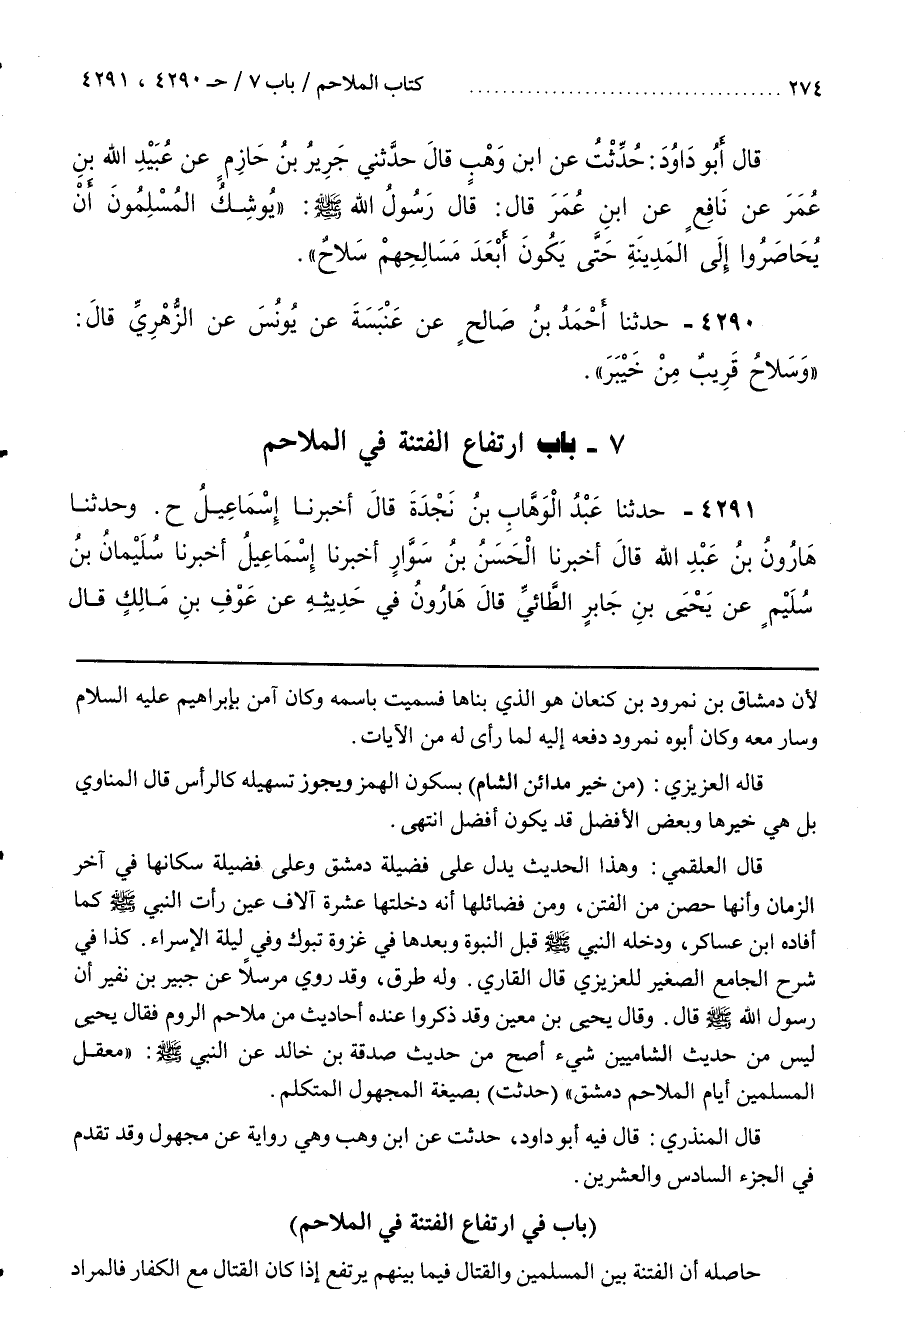 ٢٧٤ ..................................... كتاب الملاحم / باب ٧ / حـ ٤٢٩٠ ، ٤٢٩١
قال أَبُو دَاوُدَ: حُدِّثْتُ عن ابن وَهْبٍ قالَ حدَّثني جَرِيرُ بنُ حَازِمٍ عن عُبَيْدِ الله بنِ
عُمَرَ عن نَافِعٍ عن ابنِ عُمَرَ قال: قال رَسُولُ الله ﷺ: «يُوشِكُ المُسْلِمُونَ أَنْ
يُحَاصَرُوا إِلَى المَدِينَةِ حَتَّى يَكُونَ أَبْعَدَ مَسَالِحِهِمْ سَلاَحُ».
٤٢٩٠ - حدثنا أَحْمَدُ بنُ صَالحٍ عن عَنْبَسَةَ عن يُونُسَ عن الزُّهْرِيِّ قالَ:
«وَسَلاحُ قَرِيبٌ مِنْ خَيْبَرَ».
٧ - باب ارتفاع الفتنة في الملاحم
٤٢٩١ - حدثنا عَبْدُ الْوَهَّابِ بنُ نَجْدَةَ قالَ أخبرنا إِسْمَاعِيلُ ح. وحدثنا
هَارُونُ بنُ عَبْدِ الله قالَ أخبرنا الْحَسَنُ بنُ سَوَّارٍ أخبرنا إِسْمَاعِيلُ أخبرنا سُلَيْمانُ بنُ
سُلَيْمٍ عن يَحْيَى بنِ جَابرٍ الطَّائيِّ قالَ هَارُونُ في حَدِيثِهِ عن عَوْفِ بنِ مَالِكٍ قال
لأن دمشاق بن نمرود بن كنعان هو الذي بناها فسميت باسمه وكان آمن بإبراهيم عليه السلام
وسار معه وكان أبوه نمرود دفعه إليه لما رأى له من الآيات.
قاله العزيزي: (من خير مدائن الشام) بسكون الهمز ويجوز تسهيله كالرأس قال المناوي
بل هي خيرها وبعض الأفضل قد يكون أفضل انتهى.
قال العلقمي: وهذا الحديث يدل على فضيلة دمشق وعلى فضيلة سكانها في آخر
الزمان وأنها حصن من الفتن، ومن فضائلها أنه دخلتها عشرة آلاف عين رأت النبي ﷺ كما
أفاده ابن عساكر، ودخله النبي ﷺ قبل النبوة وبعدها في غزوة تبوك وفي ليلة الإسراء. كذا في
شرح الجامع الصغير للعزيزي قال القاري. وله طرق، وقد روي مرسلاً عن جبير بن نفير أن
رسول الله ﷺ قال. وقال يحيى بن معين وقد ذكروا عنده أحاديث من ملاحم الروم فقال يحيى
ليس من حديث الشاميين شيء أصح من حديث صدقة بن خالد عن النبي ﷺ: «معقل
المسلمين أيام الملاحم دمشق» (حدثت) بصيغة المجهول المتكلم.
قال المنذري: قال فيه أبو داود، حدثت عن ابن وهب وهي رواية عن مجهول وقد تقدم
في الجزء السادس والعشرين.
(باب في ارتفاع الفتنة في الملاحم)
حاصله أن الفتنة بين المسلمين والقتال فيما بينهم يرتفع إذا كان القتال مع الكفار فالمراد